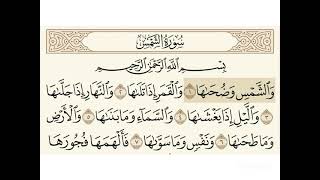 سُورَةُ الشَّمْسِ
بِسْمِ اللَّهِ الرَّحْمَٰنِ الرَّحِيمِ
وَالشَّمْسِ وَضُحَىٰهَا ١ وَالْقَمَرِ إِذَا تَلَىٰهَا ٢ وَالنَّهَارِ إِذَا جَلَّىٰهَا
٣ وَالَّيْلِ إِذَا يَغْشَىٰهَا ٤ وَالسَّمَاءِ وَمَا بَنَىٰهَا ٥ وَالْأَرْضِ
وَمَا طَحَىٰهَا ٦ وَنَفْسٍ وَمَا سَوَّىٰهَا ٧ فَأَلْهَمَهَا فُجُورَهَا